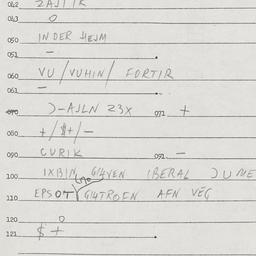 042 ZAJIIK
043 O
050 IN DER HEJM
051 —
060 VU/VUHIN/ FORTIR
061 —
070 )-AJLN 23X 071 +
080 +/$+/—
090 CURIK 091 —
100 IXBIN GIHVEN IBERAL
110 EPSOT AFN VEG
120 O
121 $ +